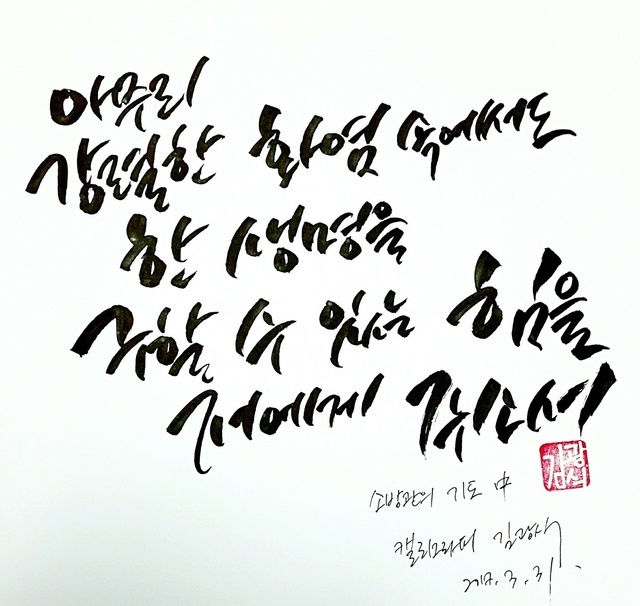 아무리
강렬한 화염 속에서도
한 생명을
구할 수 있는 힘을
저에게 주소서
김광석
소방관의 기도 中
캘리그라피 김광석
2017. 3. 31.